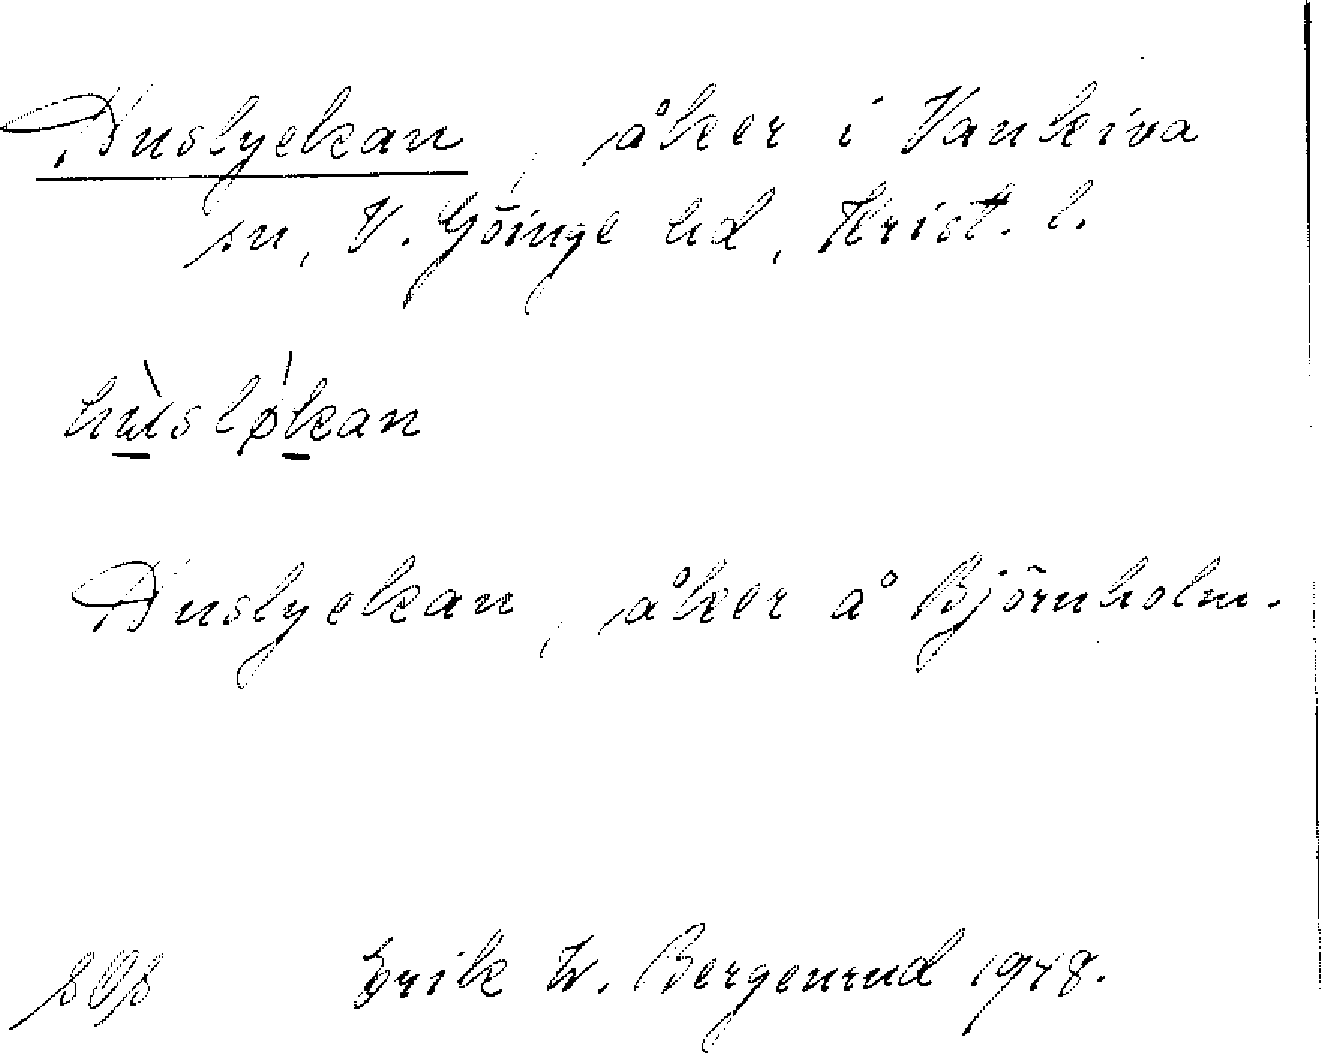 Huslyckan, åker i Vankiva
sn, V. Göinge hd, Krist. l.
hùsløkan
Huslyckan, åker å Björnholm.
Erik W. Bergenrud 1948.